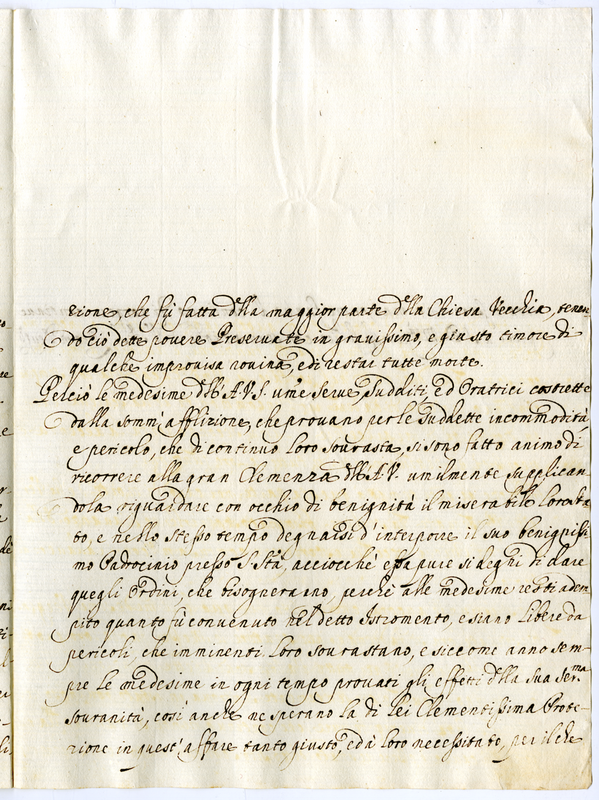 zione, che fù fatta dlla maggior parte dlla Chiesa Vecchia, tenen
do ciò dette povere Preservate in gravissimo, e giusto timore di
qualche improvisa rovina, e di restar tutte morte.
Perciò le medesime dll'A.V.S. ume serve Sudditi, ed Oratrici costrette
dalla somm'afflizione, che provano per le Suddette incommodità
e pericolo, che di continuo Loro sourasta, si sono fatto animo di
ricorrere alla gran Clemenza dll'A.V. umilmente supplican
dola riguardare con occhio di benignità il miserabile Loro sta
to, e nello stesso tempo degnarsi d'interporre il suo benignissi
mo Padrocinio presso S. Stà, acciocchè essa pure si deghi di dare
quegli Ordini, che bisognerano, perchè alle medesime resti adem
pito quanto fù convenuto nel detto Istromento, e siano Libere da
pericoli, che imminenti Loro sourastano, e siccome anno sem-
pre Le medesime in ogni tempo provati gli effetti dlla sua Ser.ma
souranità, così anche ne sperano la di Lei Clementissima Prote-
zione in quest'affare tanto giusto, ed à Loro necessitato, per il che